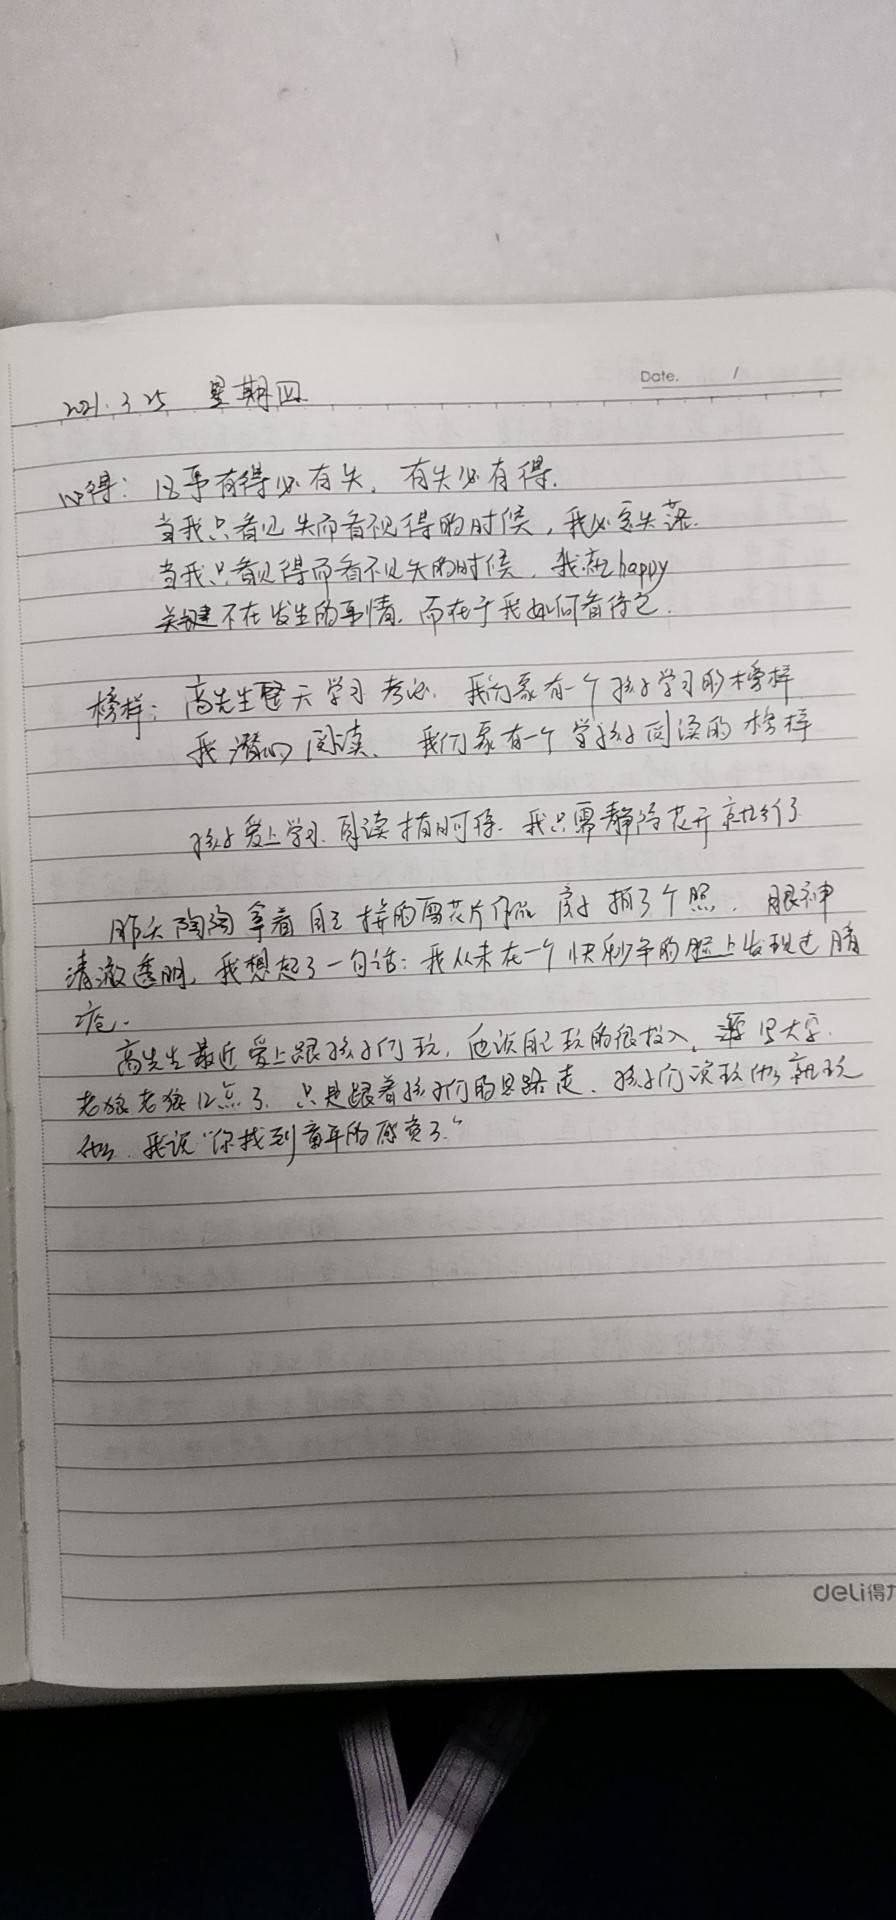 Date. /
2021.3.25 星期四
心得：凡事有得必有失，有失必有得.
当我只看见失而看不见得的时候，我必定失落.
当我只看见得而看不见失的时候，我就happy
关键不在发生的事情，而在于我如何看待它.
榜样：高先生整天学习考试，我们家有一个孩子学习的榜样
我潜心阅读、我们家有一个学孩子阅读的榜样
孩子爱上学习、阅读指日可待，我只需静待花开就行了
昨天陶陶拿着自己接的雪花片作品房子拍了个照，眼神
清澈透明，我想起了一句话：我从未在一个快乐少年的脸上发现过
疮.
高先生最近爱上跟孩子们玩，他说自己玩的很投入，
老狼老狼12点了，只是跟着孩子们的思路走，孩子们说玩什么就玩
什么，我说"你找到童年的感觉了."
deli得力